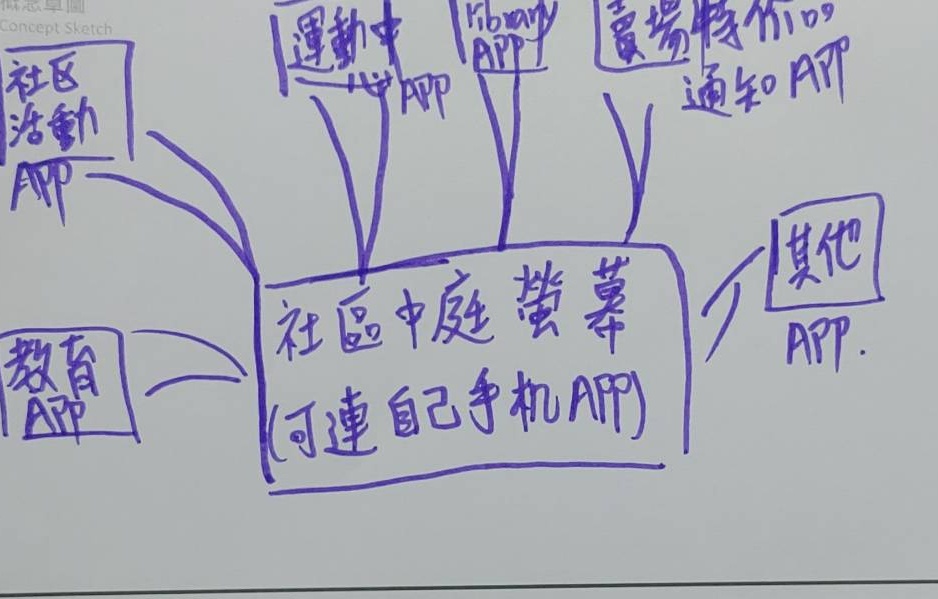 概念草圖
Concept Sketch
社区
活動
APP
運動中
心 APP
library
APP
賣場特价品
通知 APP
其他
APP.
教育
APP
社區中庭螢幕
(可連自己手机APP)